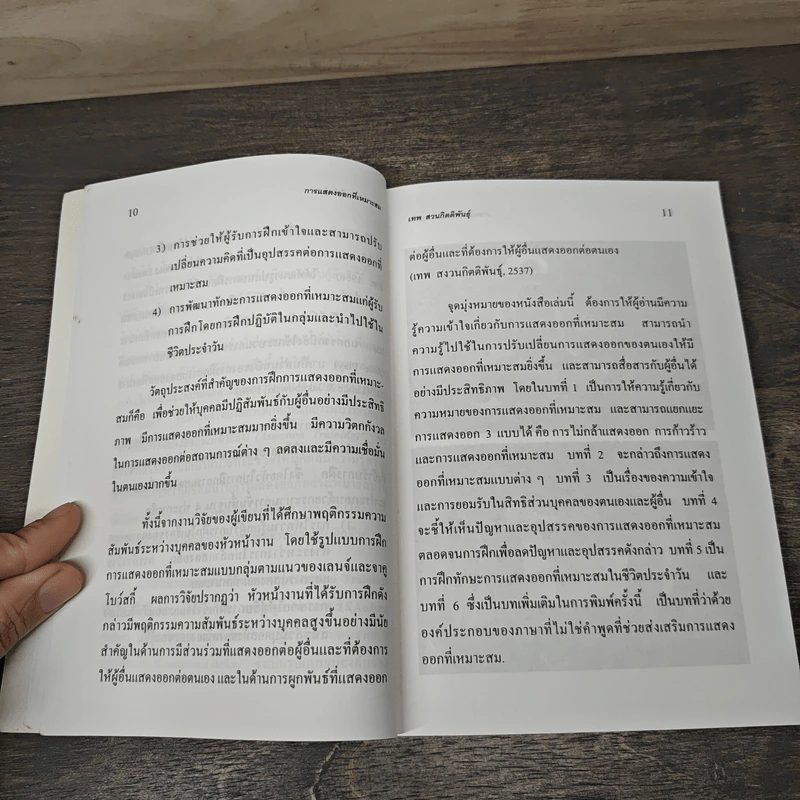 10
การแสดงออกที่เหมาะสม
3) การช่วยให้ผู้รับการฝึกเข้าใจและสามารถปรับ
เปลี่ยนความคิดที่เป็นอุปสรรคต่อการแสดงออกที่
เหมาะสม
4) การพัฒนาทักษะการแสดงออกที่เหมาะสมแก่ผู้รับ
การฝึกโดยการฝึกปฏิบัติในกลุ่มและนำไปใช้ใน
ชีวิตประจำวัน
วัตถุประสงค์ที่สำคัญของการฝึกการแสดงออกที่เหมาะ-
สมก็คือ เพื่อช่วยให้บุคคลมีปฏิสัมพันธ์กับผู้อื่นอย่างมีประสิทธิ
ภาพ มีการแสดงออกที่เหมาะสมมากยิ่งขึ้น มีความวิตกกังวล
ในการแสดงออกต่อสถานการณ์ต่าง ๆ ลดลงและมีความเชื่อมั่น
ในตนเองมากขึ้น
ทั้งนี้จากงานวิจัยของผู้เขียนที่ได้ศึกษาพฤติกรรมความ
สัมพันธ์ระหว่างบุคคลของหัวหน้างาน โดยใช้รูปแบบการฝึก
การแสดงออกที่เหมาะสมแบบกลุ่มตามแนวของเลนจ์และจาคู
โบว์สกี้ ผลการวิจัยปรากฏว่า หัวหน้างานที่ได้รับการฝึกดัง
กล่าวมีพฤติกรรมความสัมพันธ์ระหว่างบุคคลสูงขึ้นอย่างมีนัย
สำคัญในด้านการมีส่วนร่วมที่แสดงออกต่อผู้อื่นและที่ต้องการ
ให้ผู้อื่นแสดงออกต่อตนเอง และในด้านการผูกพันธ์ที่แสดงออก
เทพ สวนกิตติพันธุ์
11
ต่อผู้อื่นและที่ต้องการให้ผู้อื่นแสดงออกต่อตนเอง
(เทพ สงวนกิตติพันธุ์, 2537)
จุดมุ่งหมายของหนังสือเล่มนี้ ต้องการให้ผู้อ่านมีความ
รู้ความเข้าใจเกี่ยวกับการแสดงออกที่เหมาะสม สามารถนำ
ความรู้ไปใช้ในการปรับเปลี่ยนการแสดงออกของตนเองให้มี
การแสดงออกที่เหมาะสมยิ่งขึ้น และสามารถสื่อสารกับผู้อื่นได้
อย่างมีประสิทธิภาพ โดยในบทที่ 1 เป็นการให้ความรู้เกี่ยวกับ
ความหมายของการแสดงออกที่เหมาะสม และสามารถแยกแยะ
การแสดงออก 3 แบบได้ คือ การไม่กล้าแสดงออก การก้าวร้าว
และการแสดงออกที่เหมาะสม บทที่ 2 จะกล่าวถึงการแสดง
ออกที่เหมาะสมแบบต่าง ๆ บทที่ 3 เป็นเรื่องของความเข้าใจ
และการยอมรับในสิทธิส่วนบุคคลของตนเองและผู้อื่น บทที่ 4
จะชี้ให้เห็นปัญหาและอุปสรรคของการแสดงออกที่เหมาะสม
ตลอดจนการฝึกเพื่อลดปัญหาและอุปสรรคดังกล่าว บทที่ 5 เป็น
การฝึกทักษะการแสดงออกที่เหมาะสมในชีวิตประจำวัน และ
บทที่ 6 ซึ่งเป็นบทเพิ่มเติมในการพิมพ์ครั้งนี้ เป็นบทที่ว่าด้วย
องค์ประกอบของภาษาที่ไม่ใช้คำพูดที่ช่วยส่งเสริมการแสดง
ออกที่เหมาะสม.